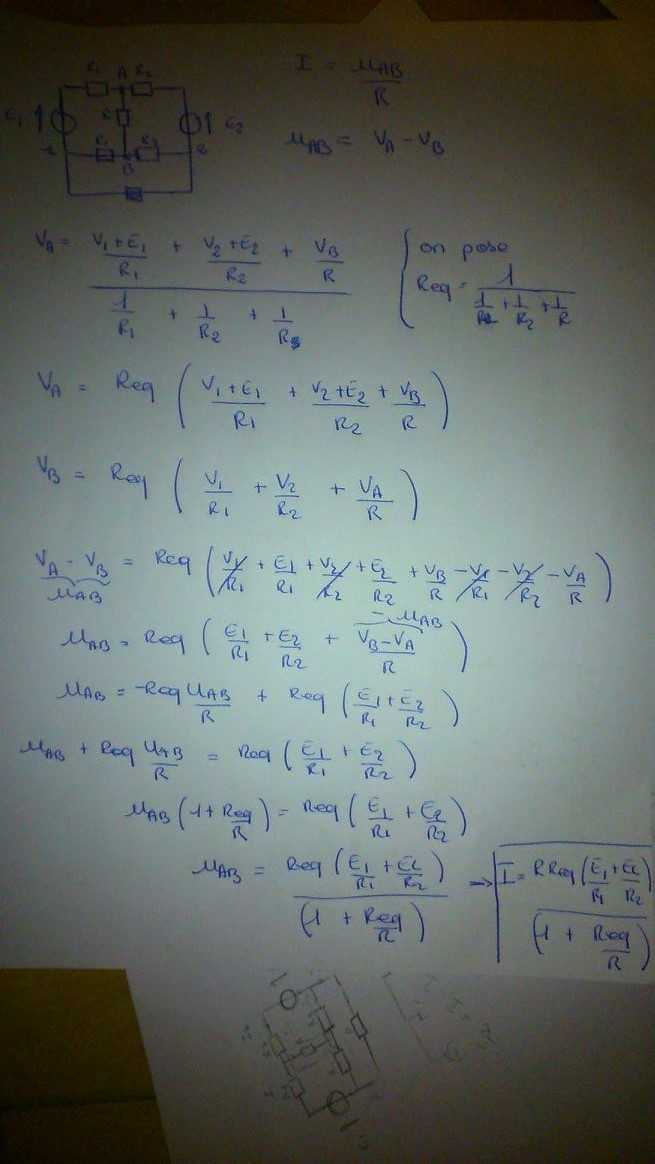 R₁ A R₂
E₁ R E₂
1 R₁ R₂ 2
B
I = u_AB / R
u_AB = V_A - V_B
V_A = ((V₁+E₁)/R₁ + (V₂+E₂)/R₂ + V_B/R) / (1/R₁ + 1/R₂ + 1/R)
on pose
Req = 1 / (1/R₁ + 1/R₂ + 1/R)
V_A = Req ( (V₁+E₁)/R₁ + (V₂+E₂)/R₂ + V_B/R )
V_B = Req ( V₁/R₁ + V₂/R₂ + V_A/R )
V_A - V_B = Req ( V₁/R₁ + E₁/R₁ + V₂/R₂ + E₂/R₂ + V_B/R - V₁/R₁ - V₂/R₂ - V_A/R )
u_AB
- u_AB
u_AB = Req ( E₁/R₁ + E₂/R₂ + (V_B - V_A)/R )
u_AB = -Req U_AB/R + Req ( E₁/R₁ + E₂/R₂ )
u_AB + Req U_AB/R = Req ( E₁/R₁ + E₂/R₂ )
u_AB ( 1 + Req/R ) = Req ( E₁/R₁ + E₂/R₂ )
u_AB = Req ( E₁/R₁ + E₂/R₂ ) / ( 1 + Req/R ) → I = R Req ( E₁/R₁ + E₂/R₂ ) / ( 1 + Req/R )